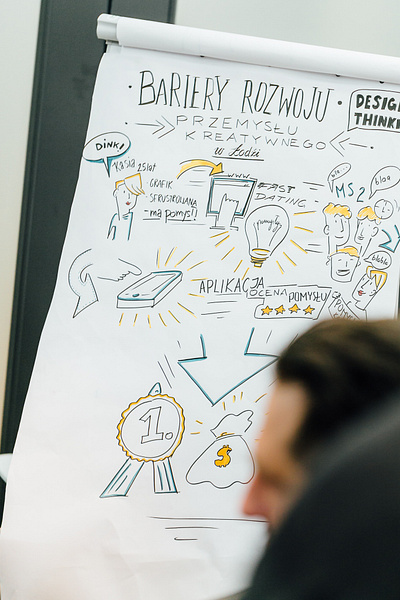 BARIERY ROZWOJU
DESIGN
THINKI
PRZEMYSŁU
KREATYWNEGO
w Łodzi
DINKI
Kasia 25 lat
GRAFIK
SFRUSTROWANA
-ma pomysł!
WWW
FAST
DATING
pomysły
MS2
bla
bla
blabla
APLIKACJA
OCENA POMYSŁU
1.
$